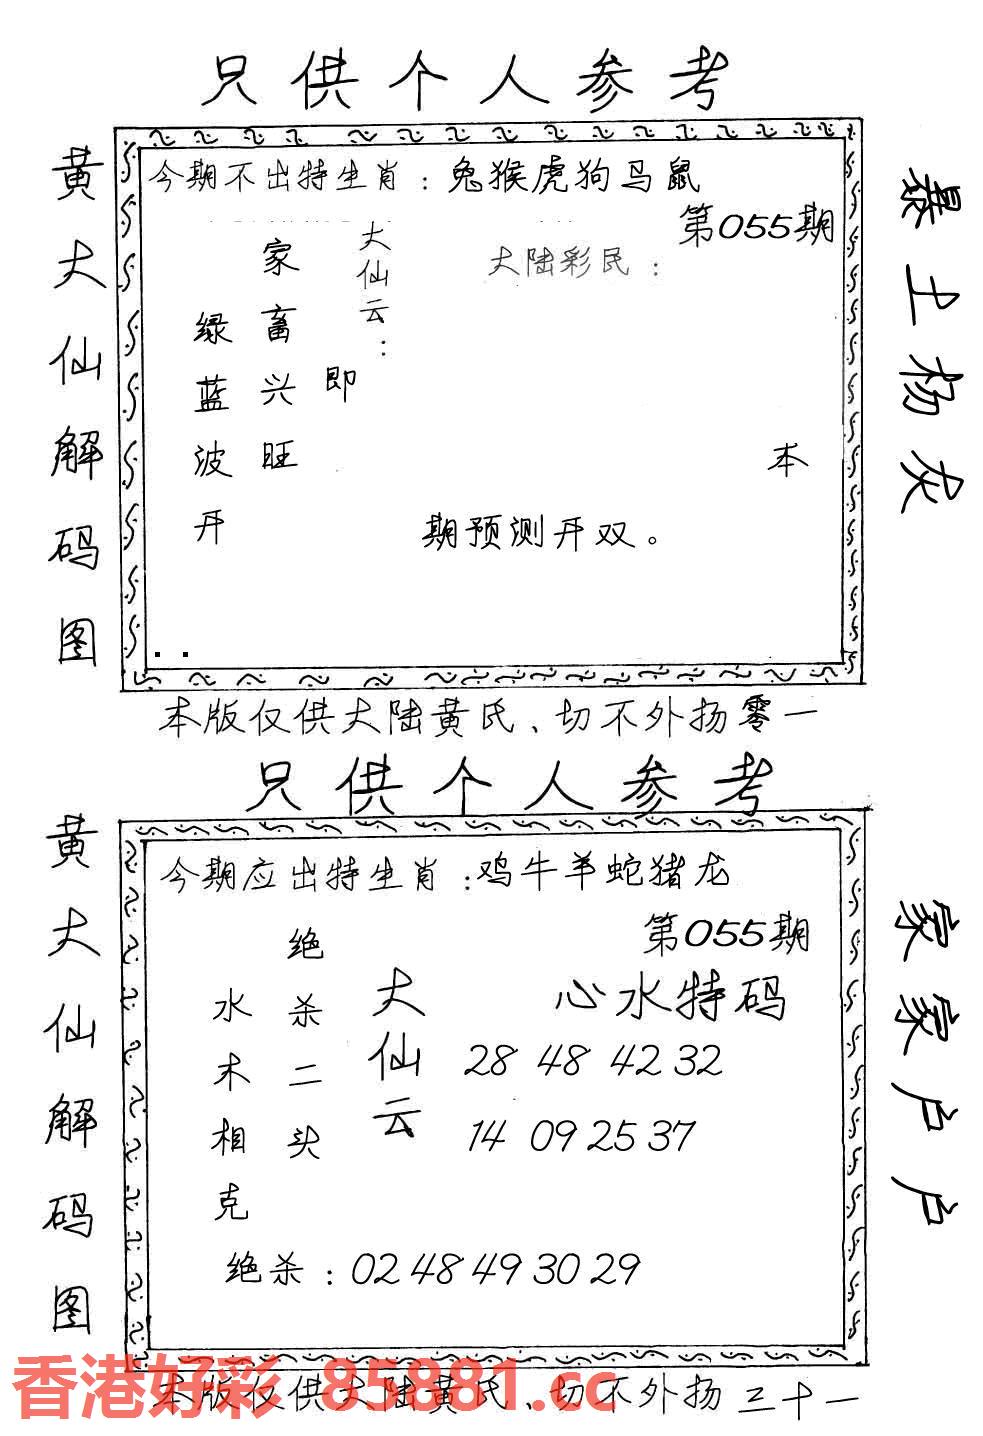 只供个人参考
黄大仙解码图
今期不出特生肖：兔猴虎狗马鼠
第055期
大陆彩民：
大仙云：
家畜兴旺
绿蓝波开
即
本
期预测开双。
土杨灰
本版仅供大陆黄氏、切不外扬零一
只供个人参考
黄大仙解码图
今期应出特生肖：鸡牛羊蛇猪龙
第055期
心水特码
大仙云
绝杀二头
水木相克
28 48 42 32
14 09 25 37
绝杀：02 48 49 30 29
家家户户
本版仅供大陆黄氏、切不外扬三十一
香港好彩 85881.cc